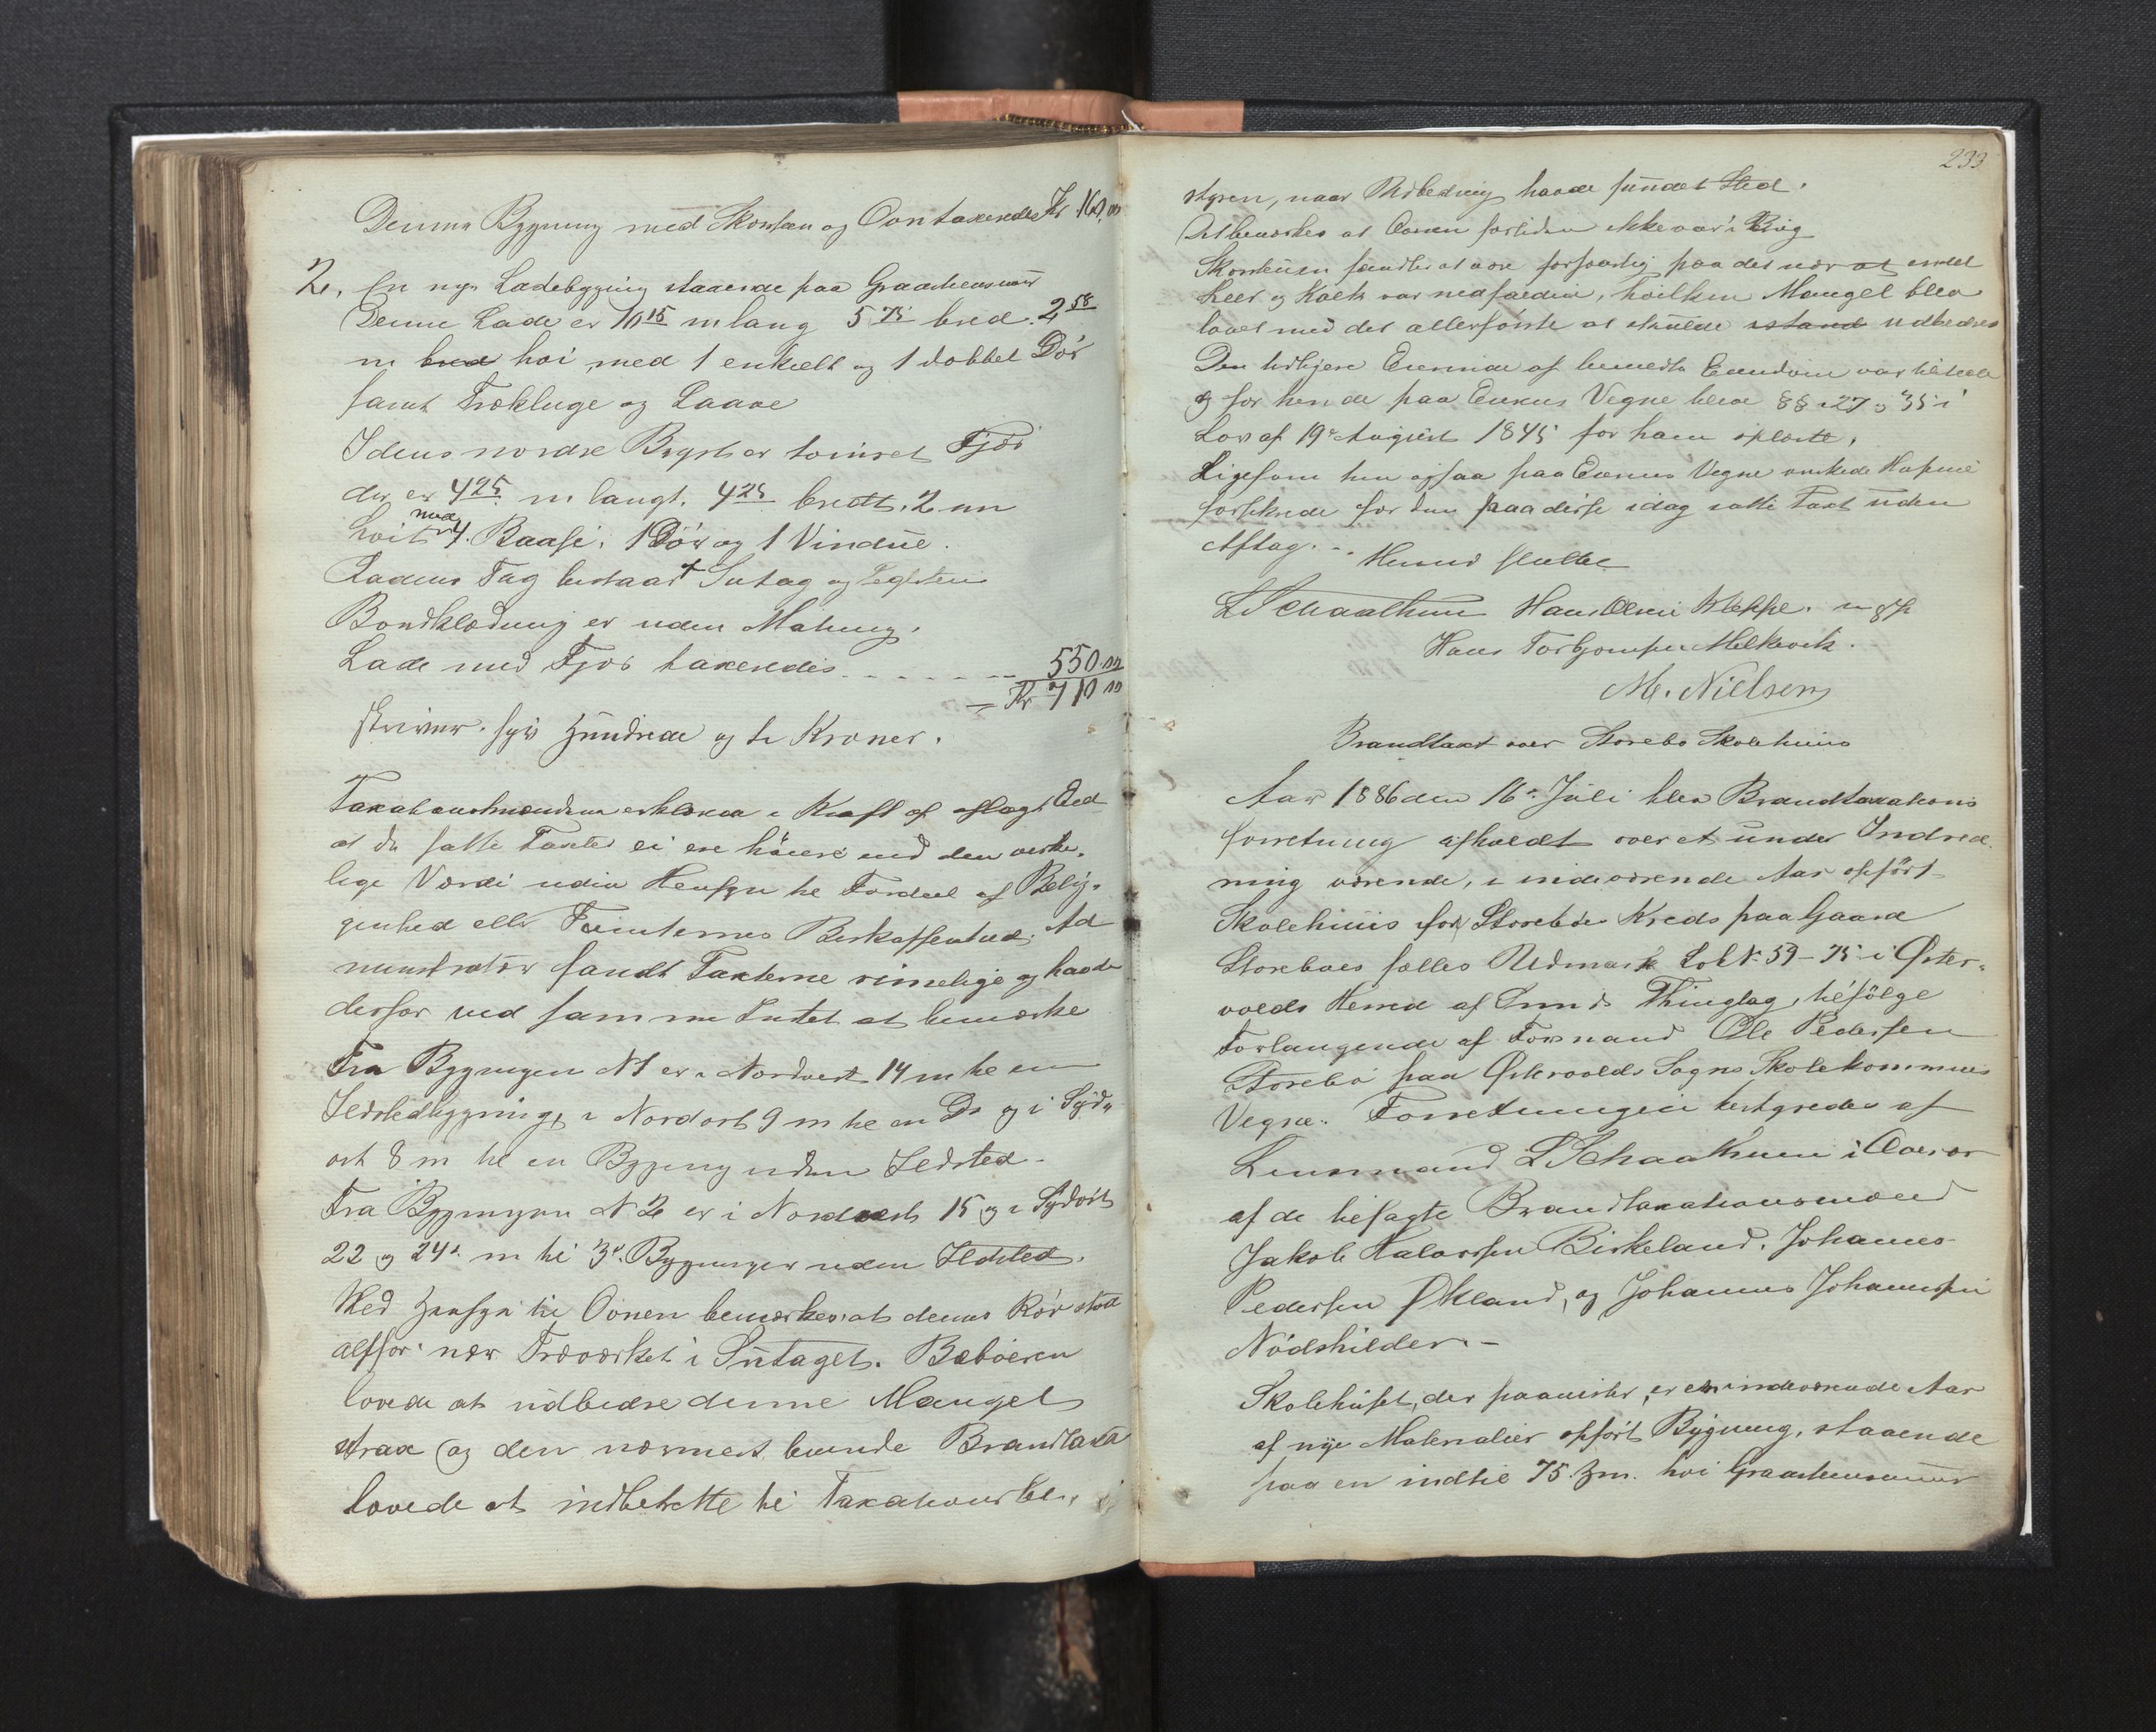 Denne Bygning med Skorsten og Oon taxeredes Kr 160,00
2, En nye Ladebygning staaende paa Graasteensmuur
Denne Lade er 10 15 m lang 5 75 bred. 2 58
m bred høi, med 1 enkelt og 1 dobbel Dør
samt Trækluge og Laave
I dens nordre Bygst er toinret Fjøs
der er 4 25 m langt. 4 25 bredt. 2 m
høit med 4. Baase. 1 Dør og 1 Vindue.
Ladens Tag bestaar + Sutag og Teglsteen
Bordklædning er uden Maling.
Lade med Fjøs taxeredes 550.00
= Kr 710 00
skriver. syv Hundrede og ti Kroner.
Taxationsmændene erklærede i Kraft af aflagt Eed
at de satte Taxter ei ere høiere end den virke-
lige Værdi uden Hensyn til Fordeel af Belig-
genhed eller Tomternes Beskaffenhed. Ad
ministrator fandt Taxterne rimelige og havde
derfor ved samme Intet at bemærke
Fra Bygningen N 1 er i Nordvest 14 m til en
Ildstedbygning, i Nordost 9 m til en Do og i Syd-
ost 8 m til en Bygning uden Ildsted.
Fra Bygningen N 2 er i Nordvest 15 og i Sydost
22 og 24 m til 3 Bygninger uden Ildsted.
Med Hensyn til Oonen bemærkes, at dennes Rør stod
altfor nær Træværket i Sutaget. Beboeren
lovede at udbedre denne Mangel
strax og den nærmest boende Brandtaxt
lovede at indberette til Taxationsbe-
233
styren, naar Udbedring havde fundet Sted.
Det bemærkes at Oonen fortiden ikke var i Brug
Skorstenen fandtes at være forsvarlig paa det nær at endel
Leer og Kalk var nedfalden, hvilken Mangel blev
lovet med det allerførste at skulde istand udbedres
Den tidligere Eierinde af bemeldte Eiendom var tilstede
og for hende paa Eierens Vegne blev §§ 27 og 35 i
Lov af 19 August 1845 for ham oplæste,
Ligesom hun ogsaa paa Eierens Vegne ønskede Husene
forsikrede for den paa disse idag satte Taxt uden
Aftag. - Herved sluttet
L Schaathun Hans Olsen Kleppe. m p P
Hans Torbjørnsen Melkevik.
M. Nielsen
Brandtaxt over Storebø Skolehuus
Aar 1886 den 16 Juli blev Brandtaxations
forretning afholdt over et under Indred
ning værende, i indeværende Aar opført
Skolehuus for Storebø Kreds paa Gaard
Storebøes fælles Udmark Løb N 59-75 i Øster-
volds Herred af Sunds Thinglag, tilfølge
Forlangende af Formand Ole Pedersen
Storebø paa Østervolds Sogns Skolekommunes
Vegne. Forretningen bestyredes af
Lensmand L Schaathun i Overvær
af de tilsagte Brandtaxationsmænd
Jakob Halvorsen Birkeland, Johannes
Pedersen Økland, og Johannes Johannesen
Nødskilder. -
Skolehuset, der paavistes, er en indeværende Aar
af nye Materialier opført Bygning, staaende
paa en indtil 75 Hm. høi Graasteensmuur